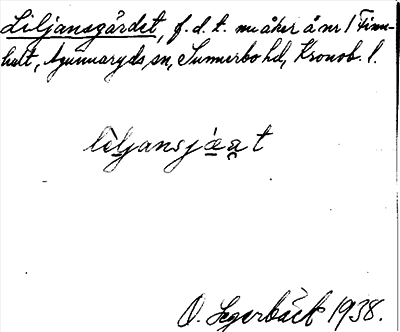 Liljansgärdet, f.d.t. nu åker å nr 1 Finn-
hult, Agunnaryds sn, Sunnerbo hd, Kronob. l.
liljansjæ̠a̠t
O. Segerbäck 1938.